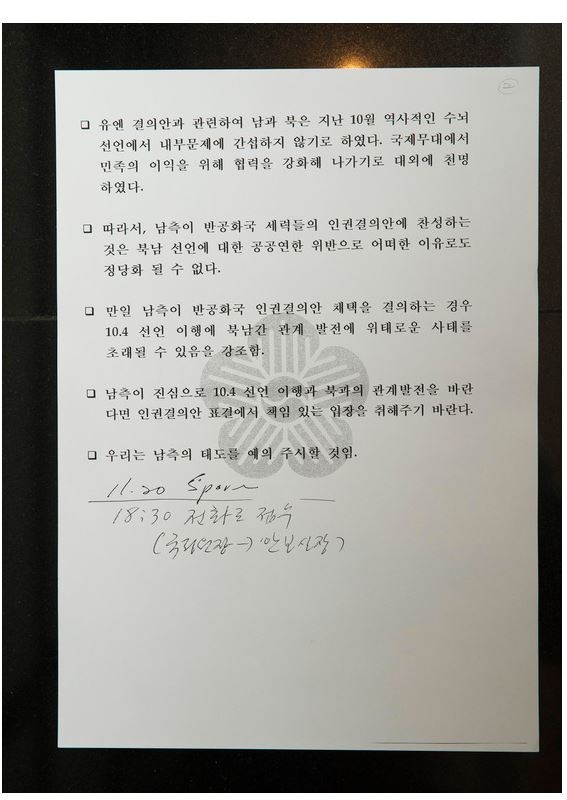 2
□ 유엔 결의안과 관련하여 남과 북은 지난 10월 역사적인 수뇌
선언에서 내부문제에 간섭하지 않기로 하였다. 국제무대에서
민족의 이익을 위해 협력을 강화해 나가기로 대외에 천명
하였다.
□ 따라서, 남측이 반공화국 세력들의 인권결의안에 찬성하는
것은 북남 선언에 대한 공공연한 위반으로 어떠한 이유로도
정당화 될 수 없다.
□ 만일 남측이 반공화국 인권결의안 채택을 결의하는 경우
10.4 선언 이행에 북남간 관계 발전에 위태로운 사태를
초래될 수 있음을 강조함.
□ 남측이 진심으로 10.4 선언 이행과 북과의 관계발전을 바란
다면 인권결의안 표결에서 책임 있는 입장을 취해주기 바란다.
□ 우리는 남측의 태도를 예의 주시할 것임.
11.20
18:30 전화로 접수
(국정원장→안보실장)